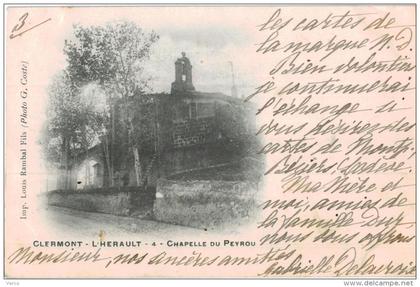 3)
les cartes de
la marque N.D.
Bien volontiers
je continuerai
l'échange si
vous désirez des
cartes de Montp.
Béziers, Lodève.
Ma mère et
moi, amies de
la famille Dur
nous vous offrons
Monsieur, nos sincères amitiés
Gabrielle Delacroix
Imp. Louis Rambal Fils (Photo G. Coste)
CLERMONT - L'HERAULT - 4 - CHAPELLE DU PEYROU
delcampe.net